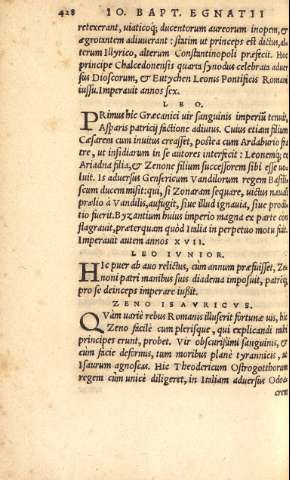 428 IO. BAPT. EGNATII
retexerant, uiaticoq́; ducentorum aureorum inopem, &
ægrotantem adiuuerant: statim ut princeps est dictus, al-
terum Illyrico, alterum Constantinopoli præfecit. Hoc
principe Chalcedonensis quarta synodus celebrata aduer
sus Dioscorum, & Eutychen Leonis Pontificis Romani
iussu. Imperauit annos sex.
LEO.
PRimus hic Græcanici uir sanguinis imperiũ tenuit,
Asparis patricij factione adiutus. Cuius etiam filium
Cæsarem cum inuitus creasset, postea cum Ardaburio fra
tre, ut insidiarum in se autores interfecit: Leonemq́; et
Ariadna filia, & Zenone filium successorem sibi esse uo
luit. Is aduersus Gensericum Vandilorum regem Basilis
scum ducem misit: qui, si Zonaram sequare, uictus nauali
prælio à Vandilis, aufugit, siue illud ignauia, siue produ
ctio fuerit. Byzantium huius imperio magna ex parte con
flagrauit, præterquam quòd Italia in perpetuo motu fuit.
Imperauit autem annos XVII.
LEO IVNIOR.
HIc puer ab auo relictus, cùm annum præfuisset, Ze
noni patri manibus suis diadema imposuit, patremq́;
pro se deinceps imperare iussit.
ZENO ISAVRICVS.
QVàm uariè rebus Romanis illuserit fortunæ uis, hic
Zeno facilè cum plerisque, qui explicandi mihi
principes erunt, probet. Vir obscurißimi sanguinis, &
cùm facie deformis, tum moribus planè tyrannicis, ut
Isaurum agnoscas. Hic Theodericum Ostrogotthorum
regem cùm unicè diligeret, in Italiam aduersus Odoa-
crem